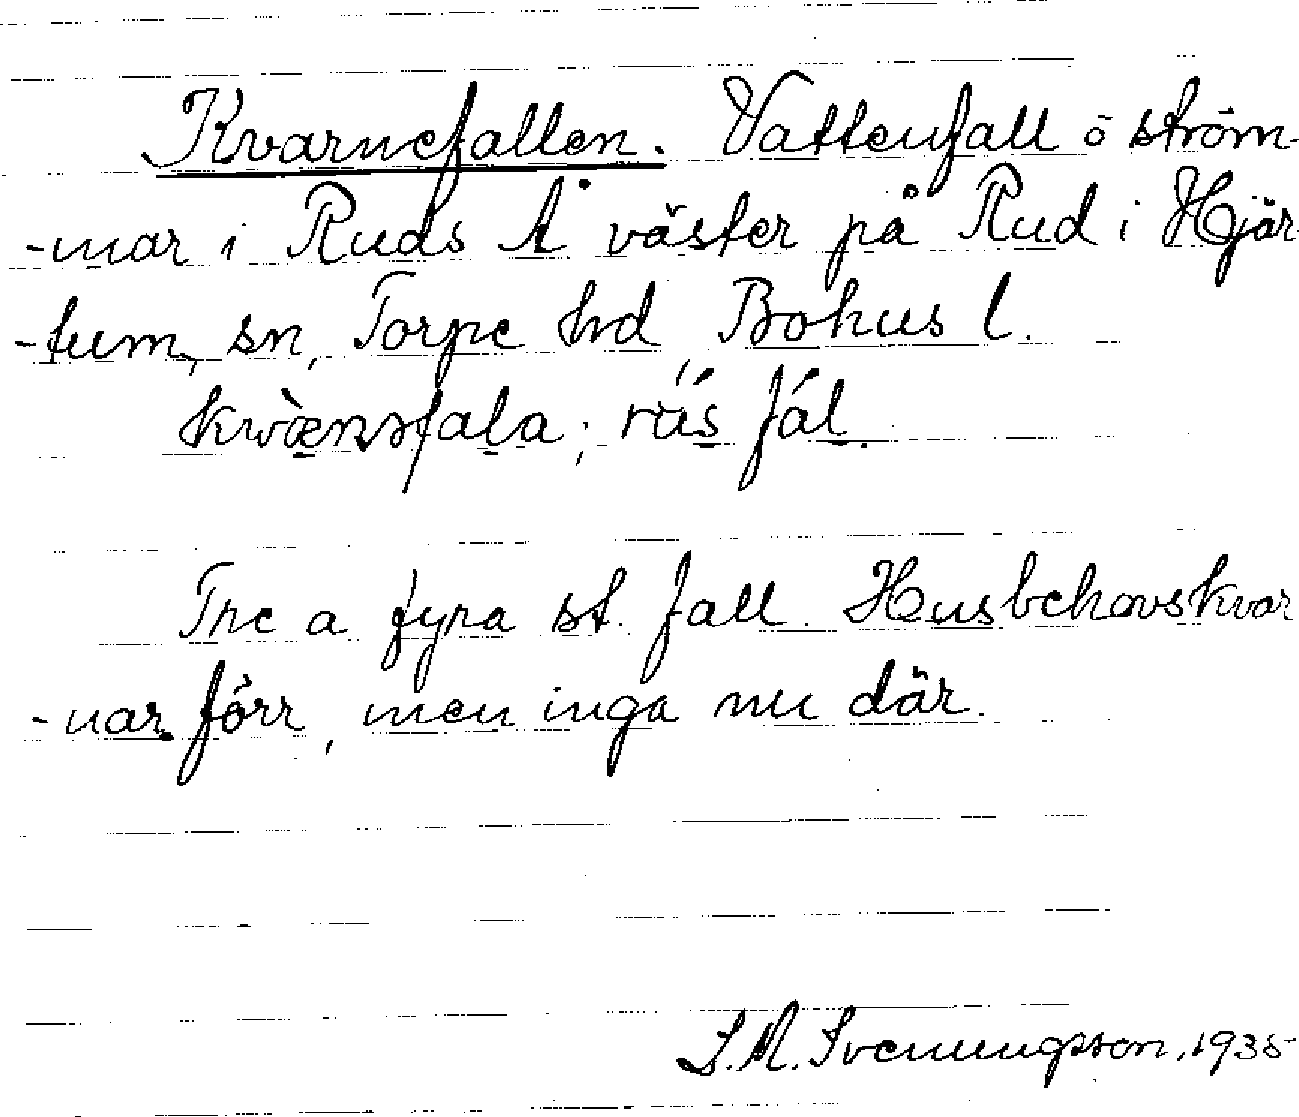 Kvarnefallen. Vattenfall ö ström-
-mar i Ruds Å väster på Rud i Hjär-
-tum, sn, Torpe hrd, Bohus l.
kwænsfala; rús fál.
Tre a fyra st. fall. Husbehovskvar
-nar förr, men inga nu där.
S.M. Svenungsson, 1935